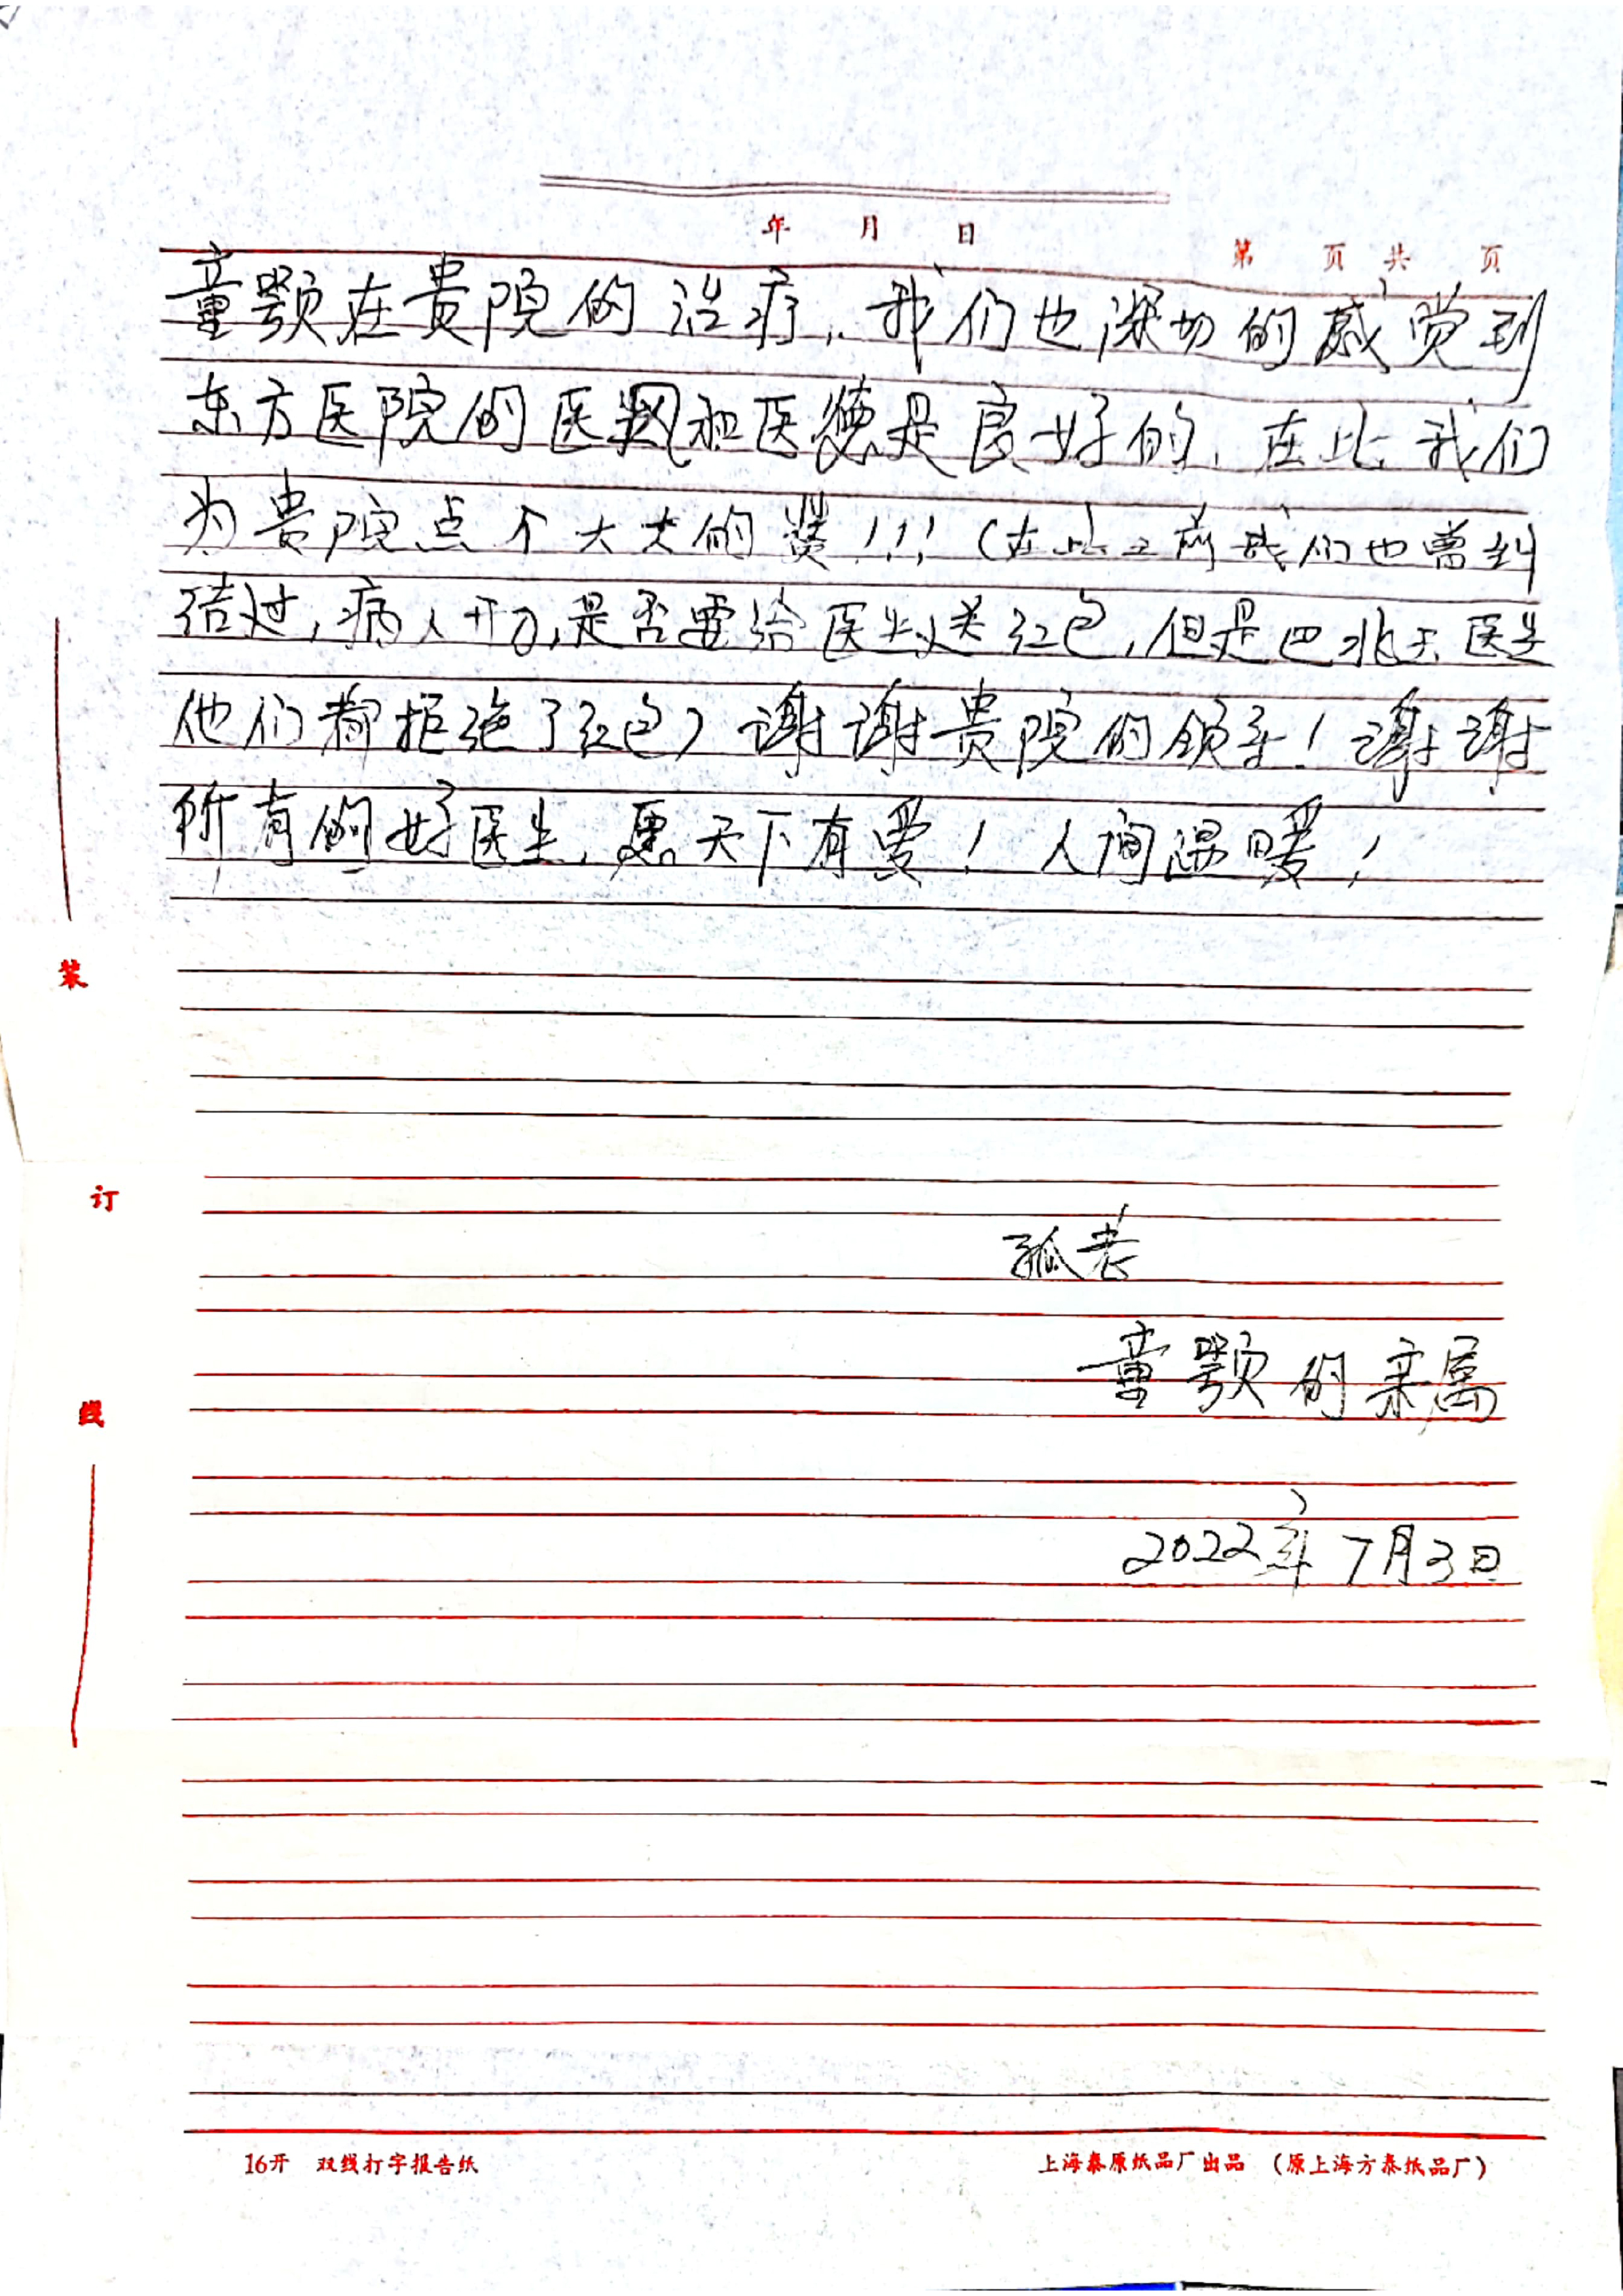 年 月 日
第 页 共 页
童颚在贵院的治疗,我们也深切的感觉到
东方医院的医风和医德是良好的,在此我们
为贵院点个大大的赞!!!(在此之前我们也曾纠
结过,病人开刀,是否要给医生送红包,但是巴兆玉医生
他们都拒绝了红包)谢谢贵院的领导!谢谢
所有的好医生,愿天下有爱!人间温暖!
装
订
孤老
童颚的亲属
线
2022年7月3日
16开 双线打字报告纸 上海泰原纸品厂出品 (原上海方泰纸品厂)